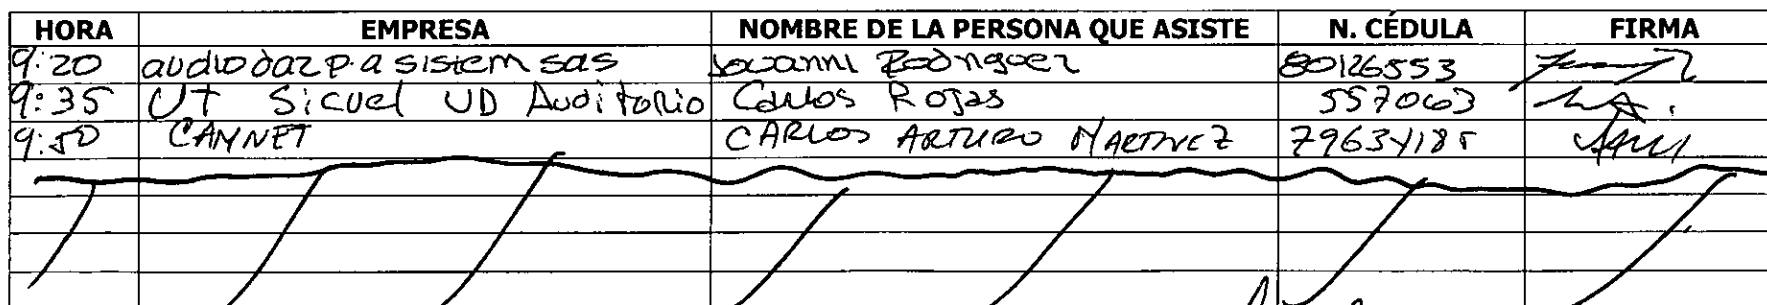 HORA EMPRESA NOMBRE DE LA PERSONA QUE ASISTE N. CÉDULA FIRMA
9:20 audiodaz p.a sistem sas Jovanni Rodriguez 80126553
9:35 UT Sicuel UD Auditorio Carlos Rojas 557063
9:50 CAMNET CARLOS ARTURO MARTINEZ 79634185